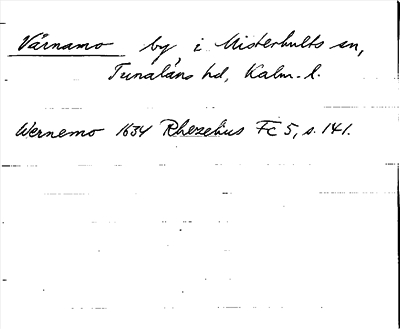 Värnamo by i Misterhults sn,
Tunaläns hd, Kalm. l.
Wernemo 1634 Rhezelius Fc 5, s. 141.